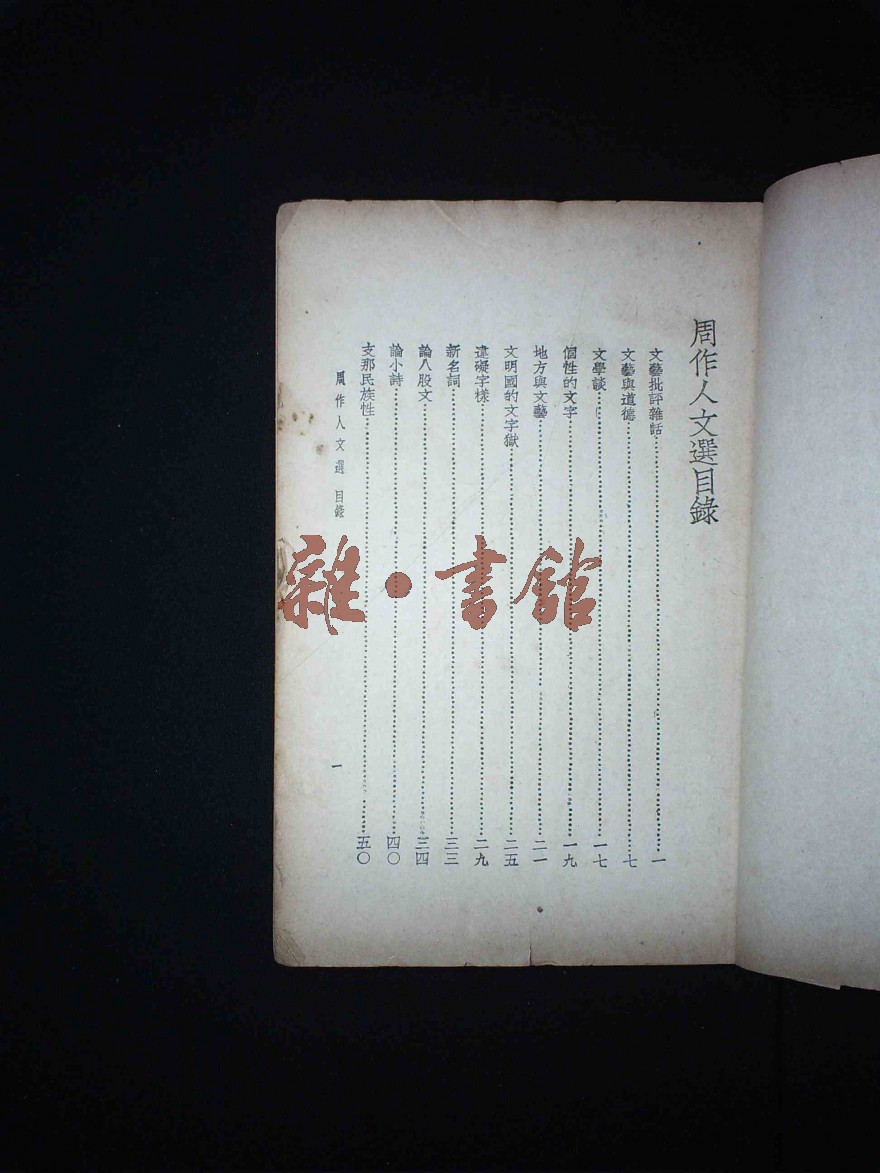 周作人文選目錄
文藝批評雜話…………………………一
文藝與道德…………………………七
文學談…………………………一七
個性的文字…………………………一九
地方與文藝…………………………二一
文明國的文字獄…………………………二五
違礙字樣…………………………二九
新名詞…………………………三三
論八股文…………………………三四
論小詩…………………………四〇
支那民族性…………………………五〇
周作人文選 目錄 一
雜·書館